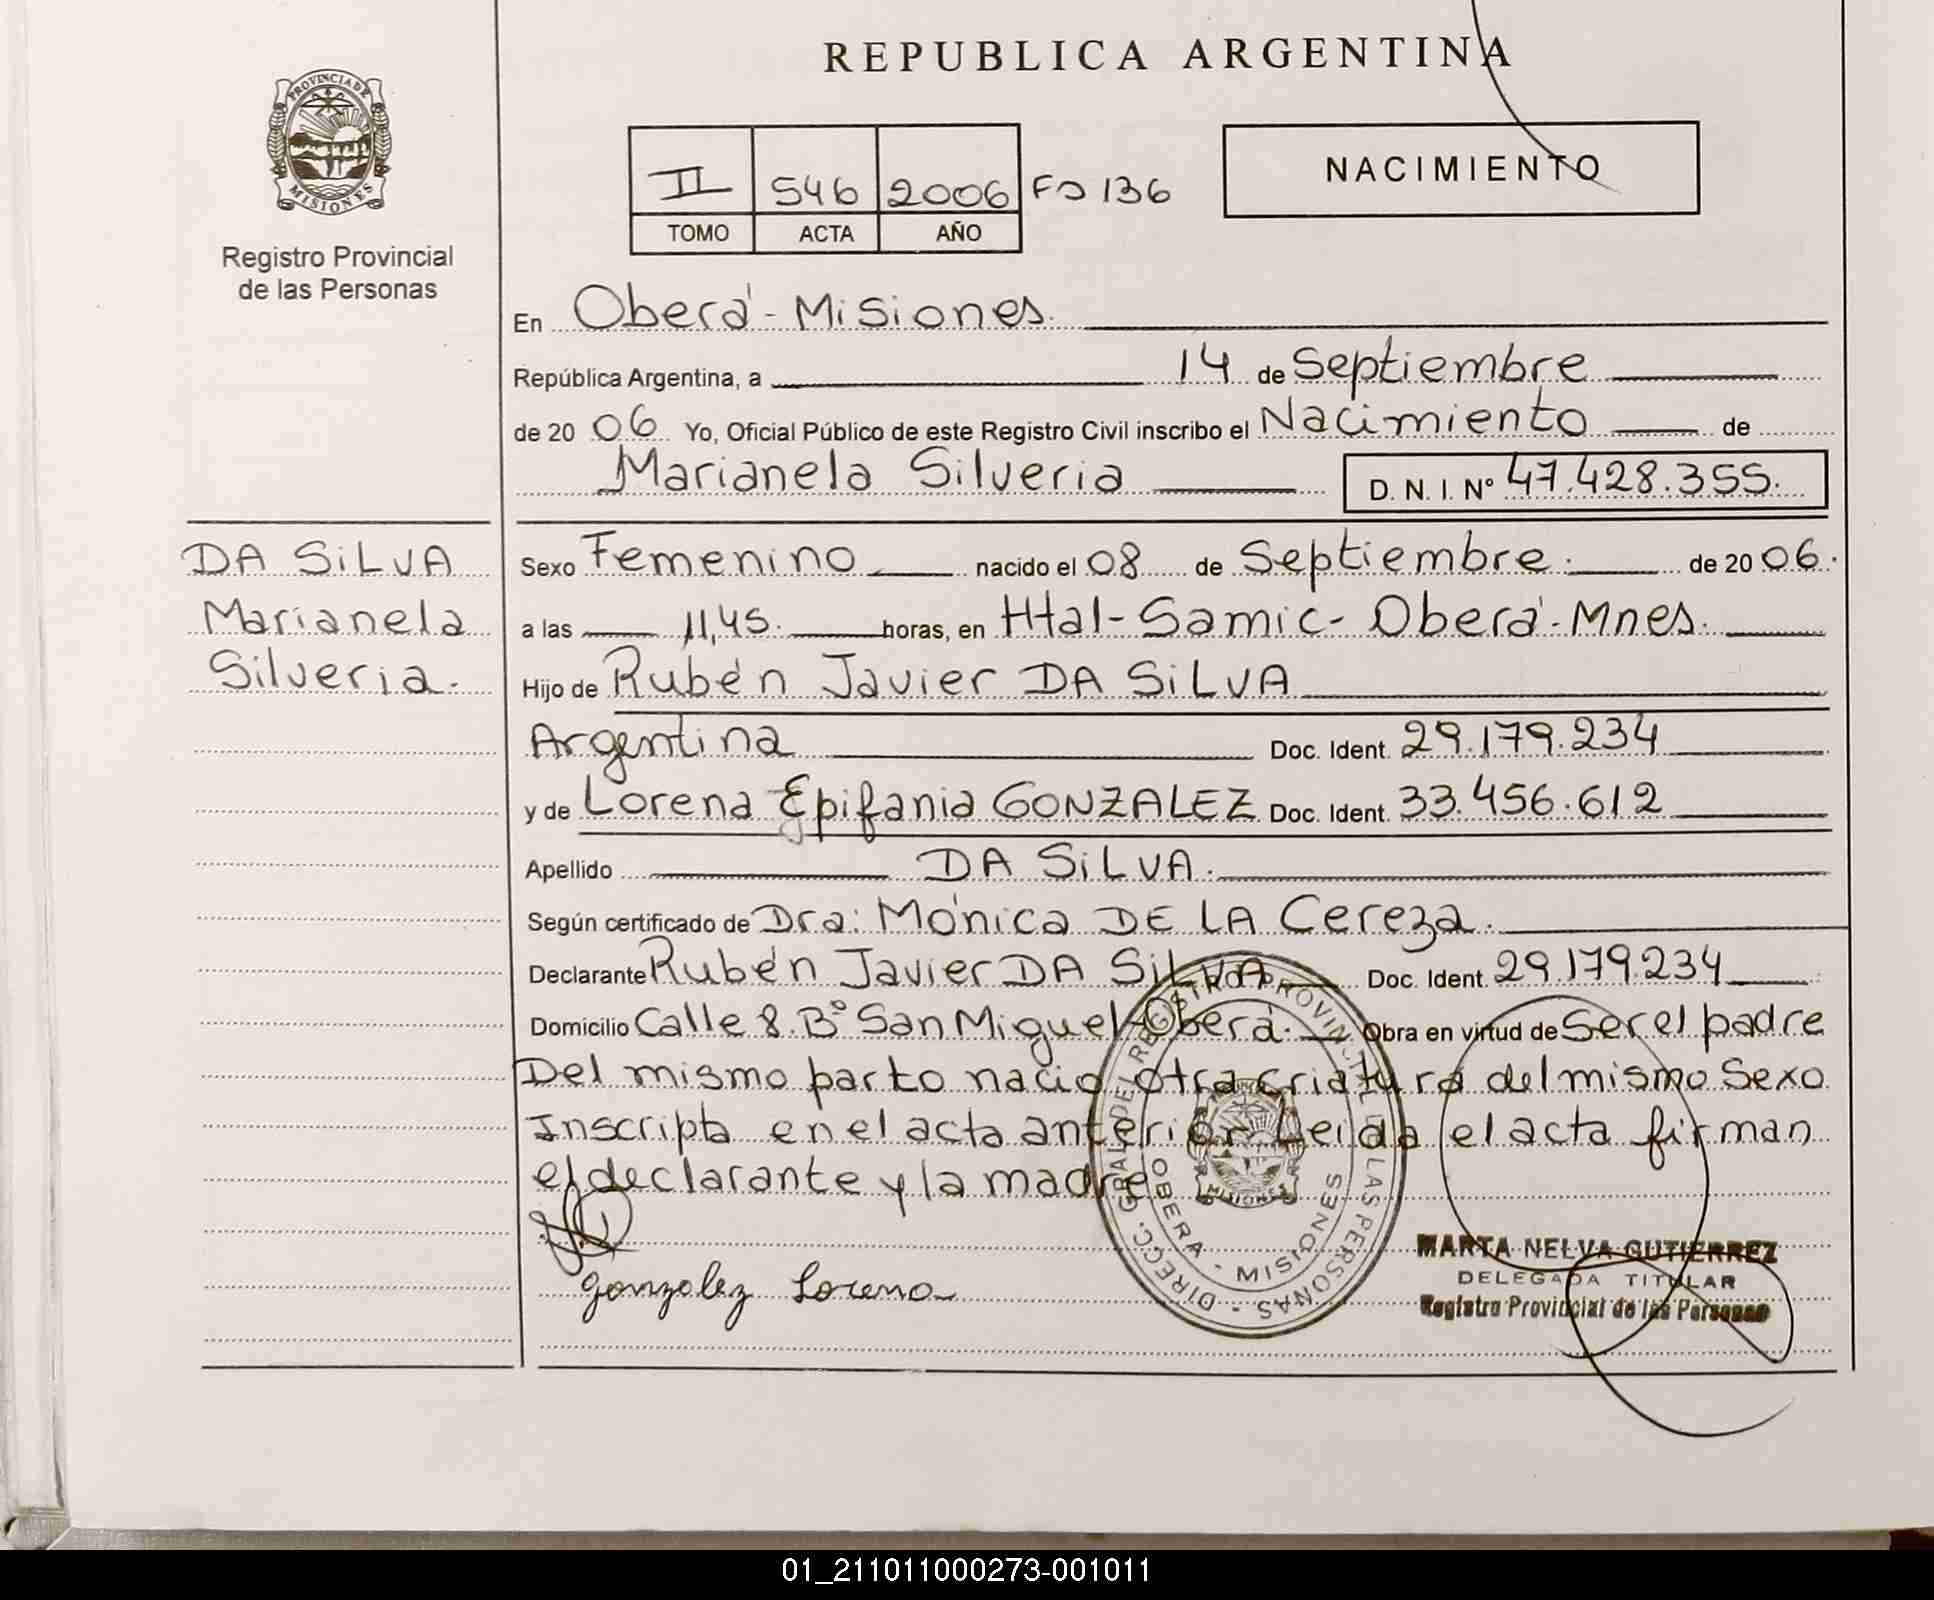 REPUBLICA ARGENTINA
PROVINCIA DE
MISIONES
Registro Provincial
de las Personas
II 546 2006 Fº 136
TOMO ACTA AÑO
NACIMIENTO
En Oberá - Misiones.
República Argentina, a 14 de Septiembre
de 20 06 Yo, Oficial Público de este Registro Civil inscribo el Nacimiento de
Marianela Silveria D. N. I. Nº 47.428.355.
DA SiLVA
Marianela
Silveria.
Sexo Femenino nacido el 08 de Septiembre. de 20 06.
a las 11,45. horas, en Htal-Samic-Oberá-Mnes.
Hijo de Rubén Javier DA SiLVA
Argentina Doc. Ident. 29.179.234
y de Lorena Epifania GONZALEZ Doc. Ident. 33.456.612
Apellido DA SiLVA.
Según certificado de Dra: Mónica DE LA Cereza.
Declarante Rubén Javier DA SiLVA Doc. Ident. 29.179.234
Domicilio Calle 8. Bº San Miguel-Oberá. Obra en virtud de Ser el padre
Del mismo parto nacio otra criatura del mismo Sexo
Inscripta en el acta anterior Leida el acta firman
el declarante y la madre
Gonzalez Lorena
DIRECC. GRAL DEL REGISTRO PROVINCIAL DE LAS PERSONAS -
OBERA - MISIONES
MISIONES
MARTA NELVA GUTIERREZ
DELEGADA TITULAR
Registro Provincial de las Personas
01_211011000273-001011